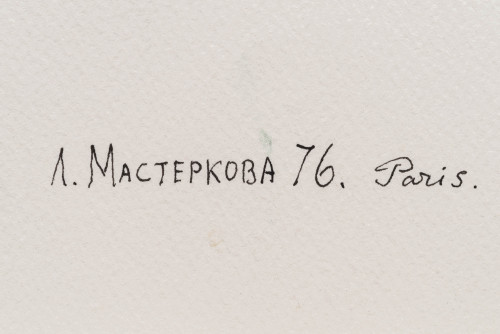 Л. МАСТЕРКОВА 76. Paris.